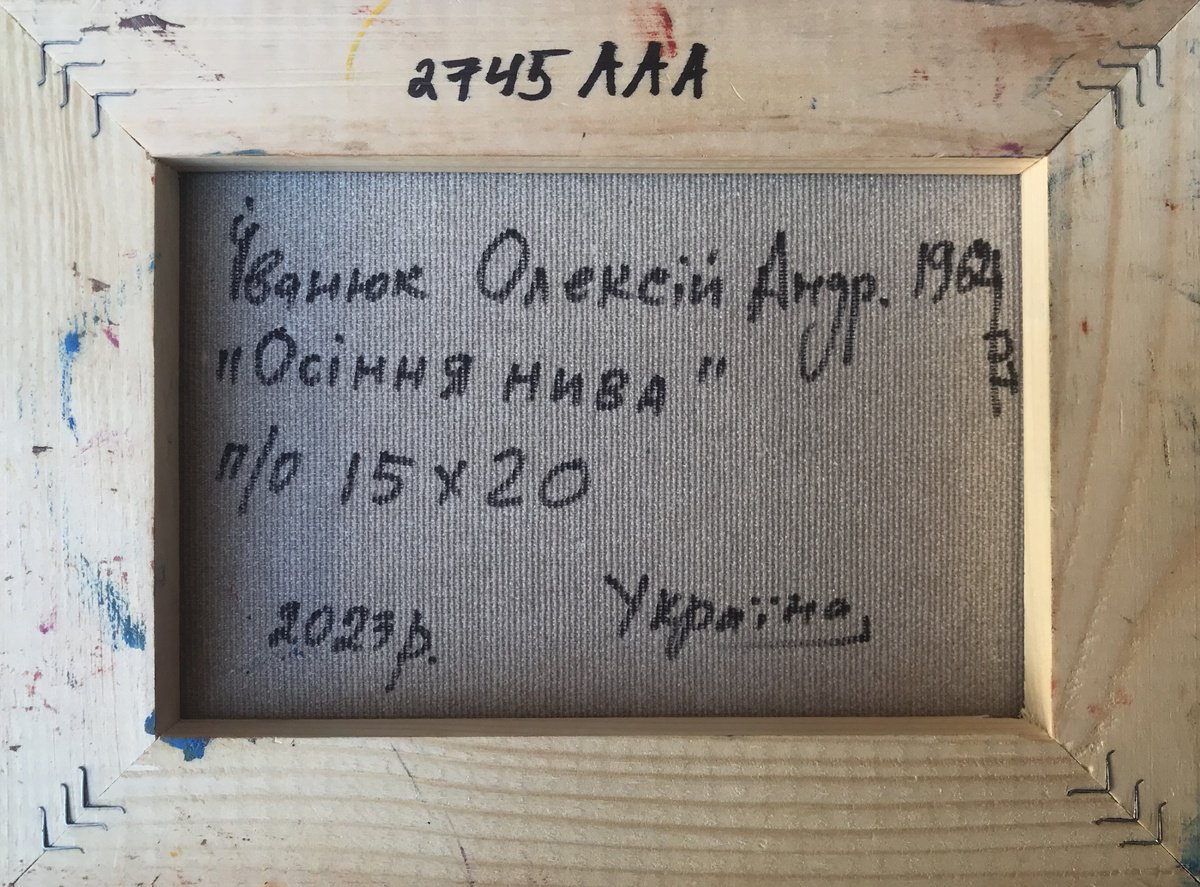 2745 ААА
Іванюк Олексій Андр. 1962
"Осіння нива"
п/о 15х20
2023р. Україна